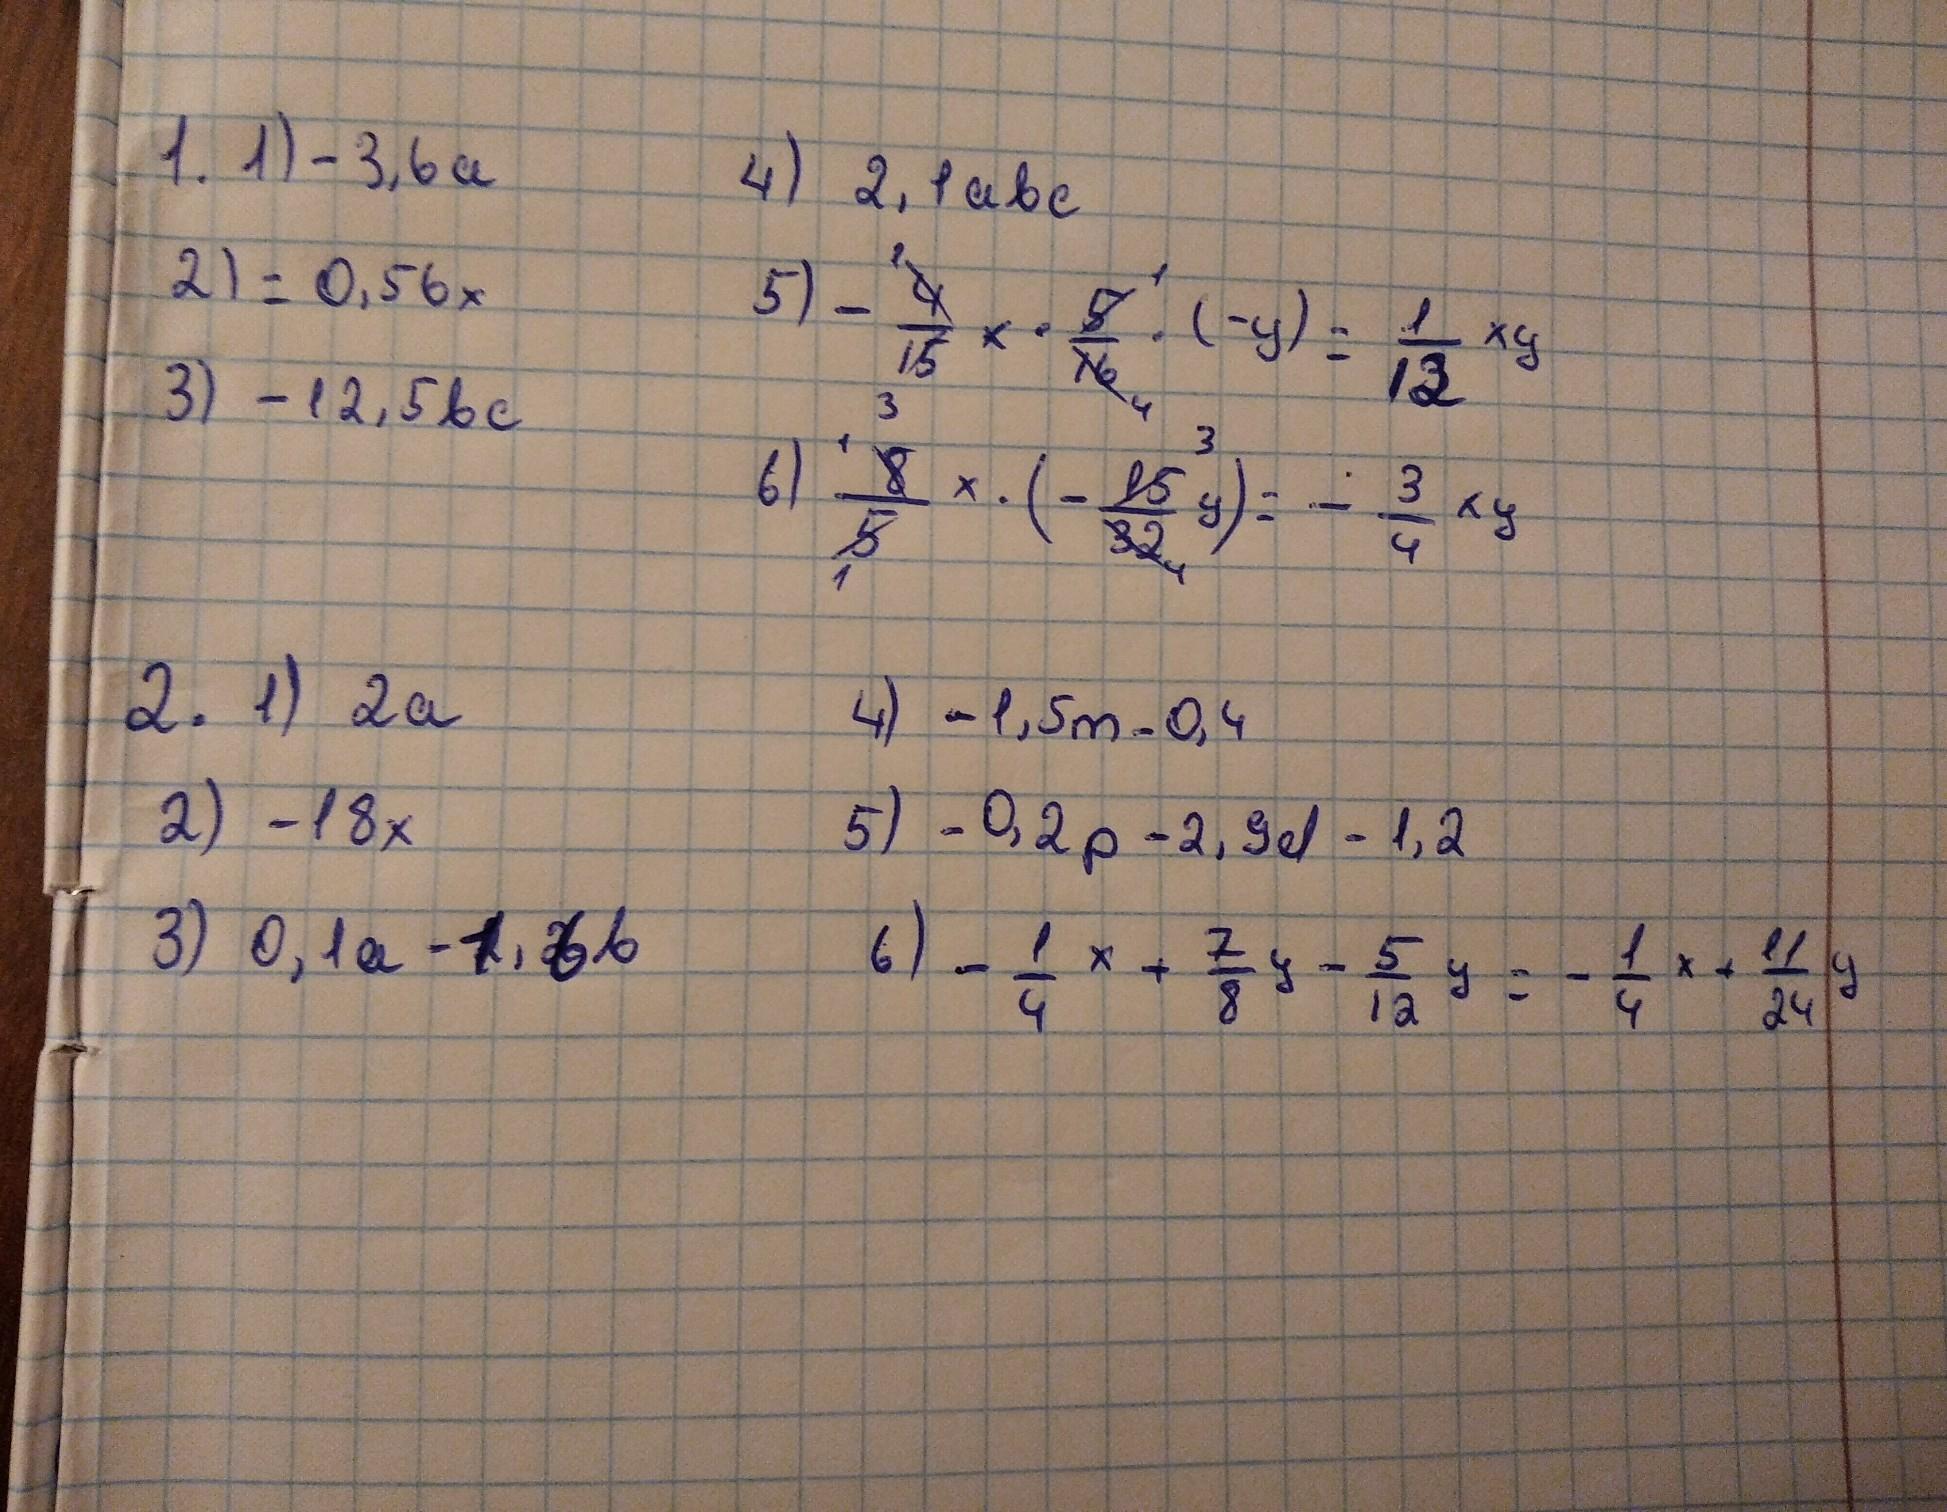 1. 1) -3,6a
2) = 0,56x
3) -12,5bc
4) 2,1abc
5) - 4/15 x · 5/16 · (-y) = 1/12 xy
6) 8/5 x · (- 15/32 y) = - 3/4 xy
2. 1) 2a
2) -18x
3) 0,1a - 1,6b
4) -1,5m - 0,4
5) -0,2p - 2,9d - 1,2
6) - 1/4 x + 7/8 y - 5/12 y = - 1/4 x + 11/24 y